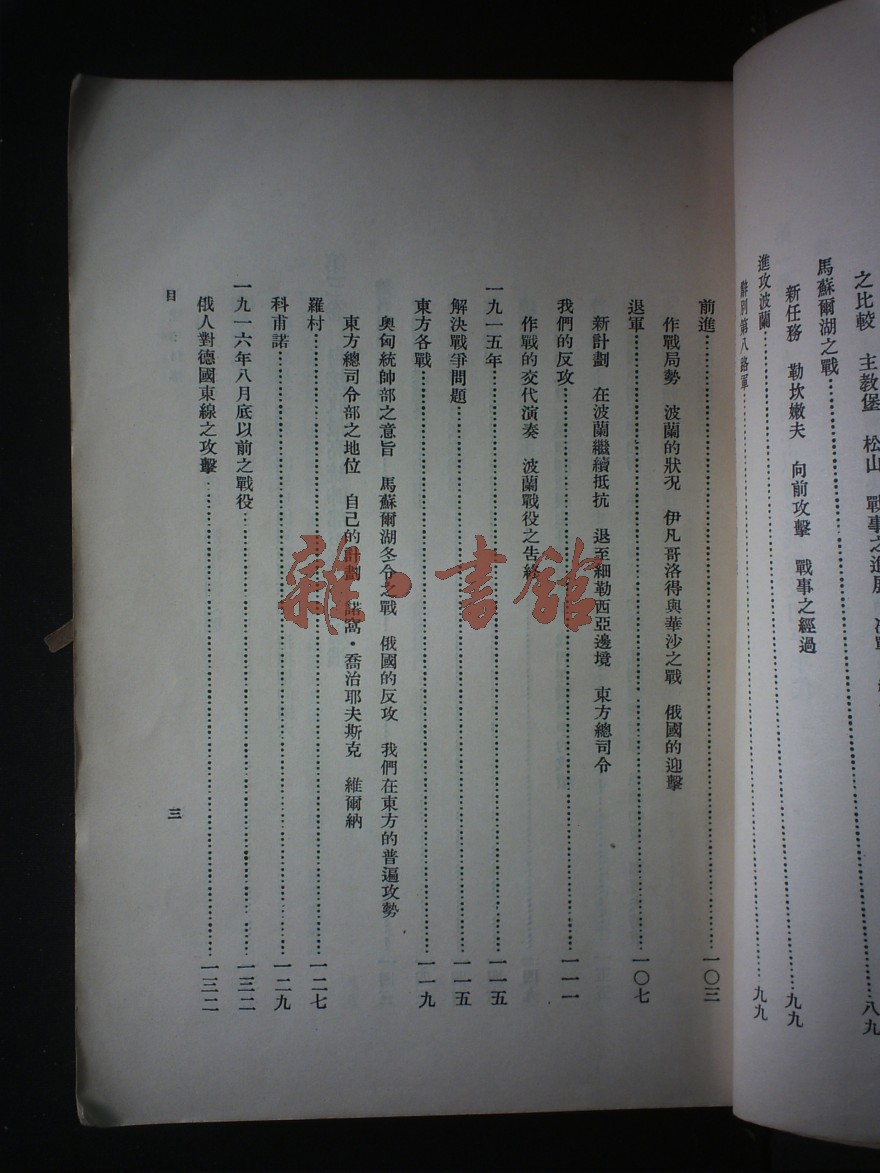 之比較　主教堡　松山　戰事之進展
八九
馬蘇爾湖之戰
新任務　勒坎嫩夫　向前攻擊　戰事之經過
九九
進攻波蘭
九九
辭別第八路軍
前進………一〇三
作戰局勢　波蘭的狀況　伊凡哥洛得與華沙之戰　俄國的迎擊
退軍………一〇七
新計劃　在波蘭繼續抵抗　退至細勒西亞邊境　東方總司令
我們的反攻………一一一
作戰的交代演奏　波蘭戰役之告終
一九一五年………一一五
解決戰爭問題………一一五
東方各戰………一一九
奧匈統帥部之意旨　馬蘇爾湖冬令之戰　俄國的反攻　我們在東方的普遍攻勢
東方總司令部之地位　自己的計劃　諾窩・喬治耶夫斯克　維爾納
羅村………一二七
科甫諾………一二九
一九一六年八月底以前之戰役………一三二
俄人對德國東線之攻擊………一三二
目
三
雜・書館